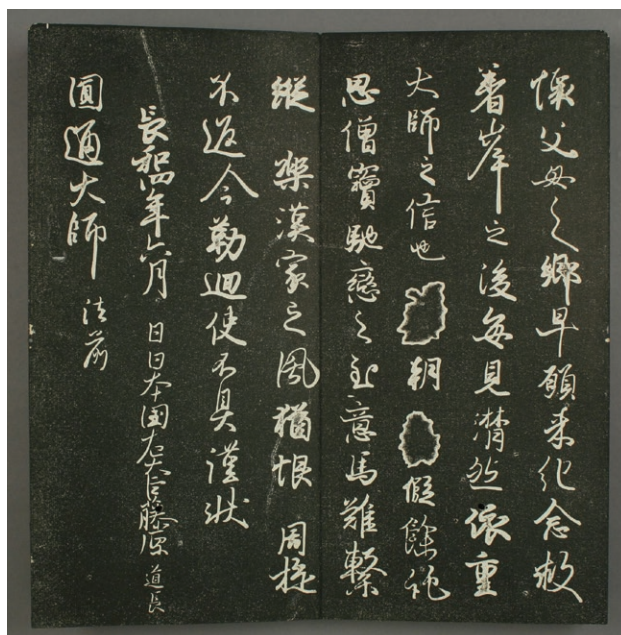 懐父母之郷早願来化念
着岸之後毎見潸然依重
大師之信也 朝 假餘
思僧寳馳戀之至意馬難繋
縦 樂漢家之風猶恨 周旋
不返今勒廻使不具謹状
長和四年六月 日日本国左大臣藤原道長
圓通大師 法前